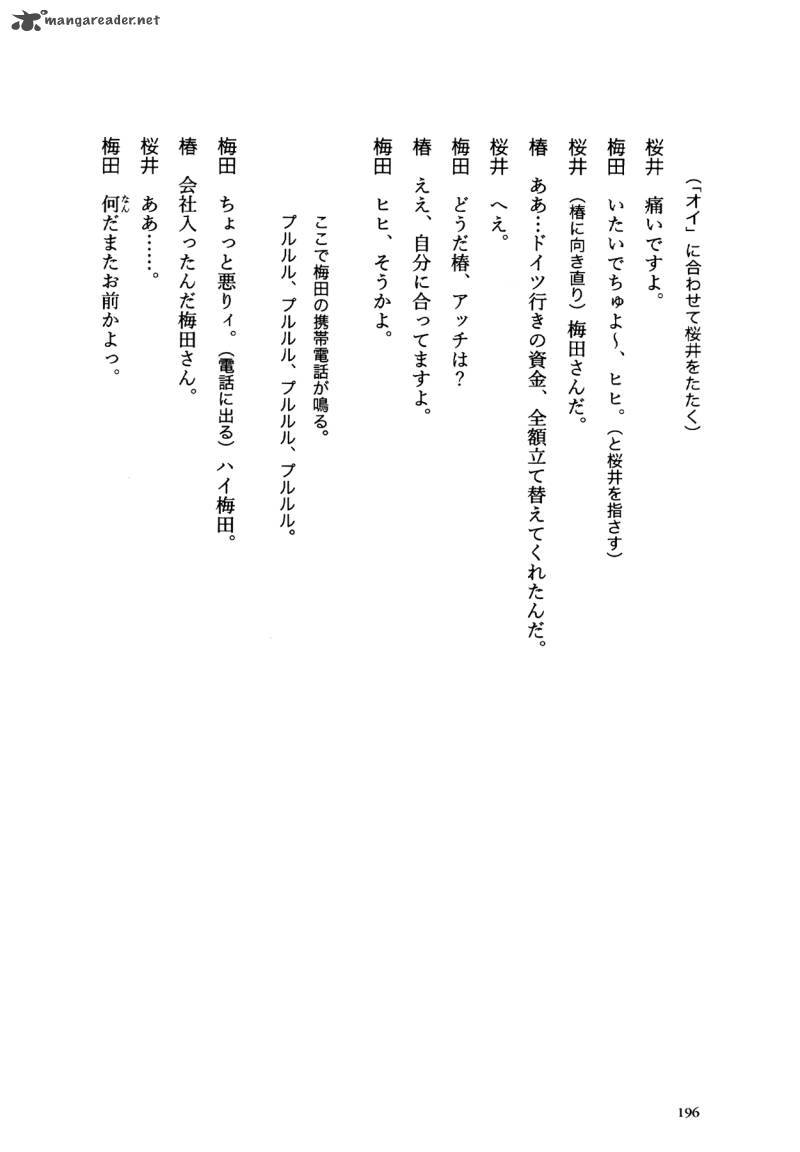 mangareader.net
（「オイ」に合わせて桜井をたたく）
桜井　痛いですよ。
梅田　いたいでちゅよ〜、ヒヒ。（と桜井を指さす）
桜井　（椿に向き直り）梅田さんだ。
椿　ああ…ドイツ行きの資金、全額立て替えてくれたんだ。
桜井　へえ。
梅田　どうだ椿、アッチは？
椿　ええ、自分に合ってますよ。
梅田　ヒヒ、そうかよ。
ここで梅田の携帯電話が鳴る。
プルルル、プルルル、プルルル、プルルル。
梅田　ちょっと悪りィ。（電話に出る）ハイ梅田。
椿　会社入ったんだ梅田さん。
桜井　ああ……。
梅田　何なんだまたお前かよっ。
196